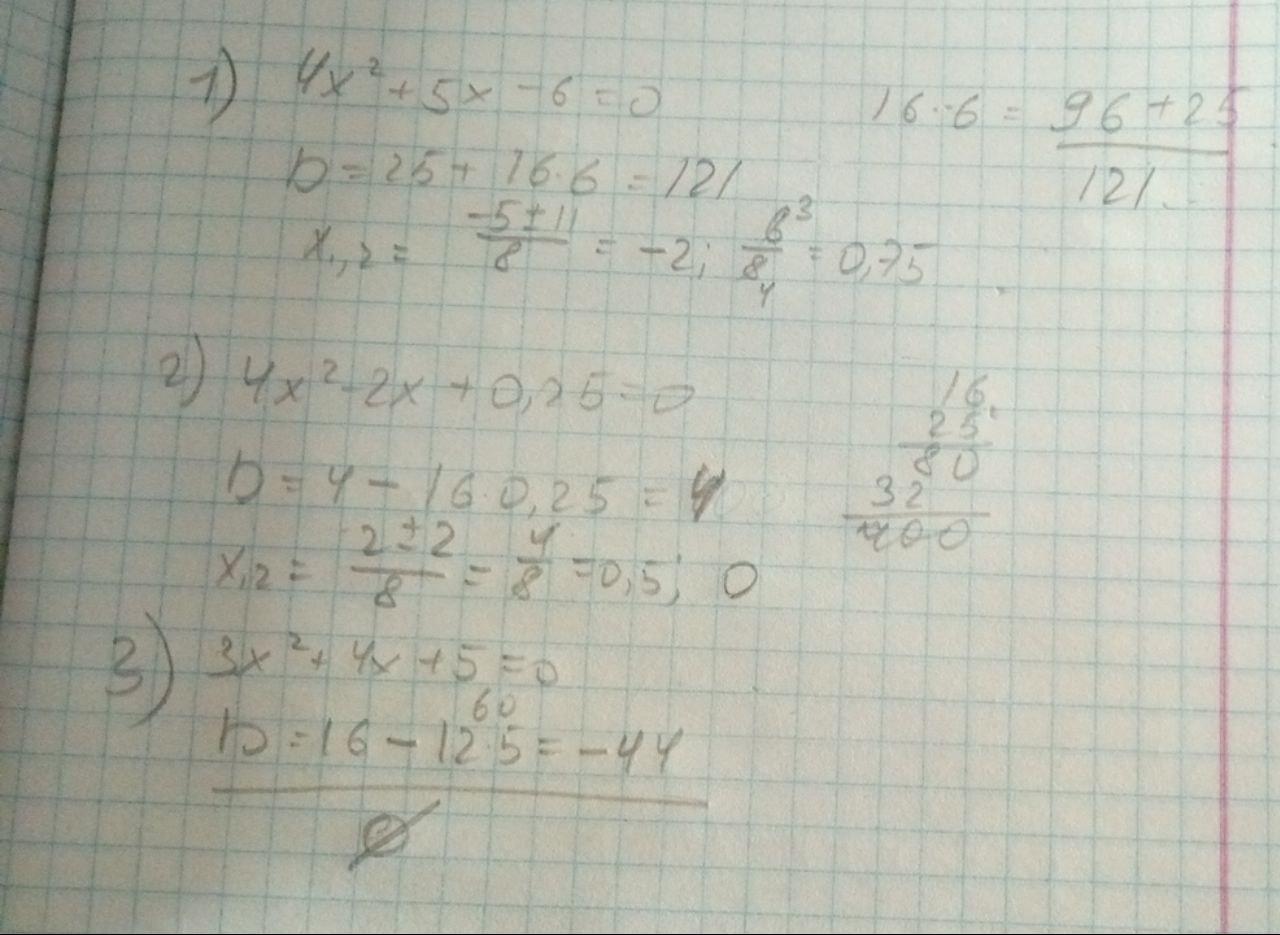 1) 4x² + 5x - 6 = 0
16·6 = 96 + 25
121
D = 25 + 16·6 = 121
x₁,₂ = (-5 ± 11)/8 = -2; 6³/8₄ = 0,75
2) 4x² - 2x + 0,25 = 0
16
25
80
32
400
D = 4 - 16·0,25 = 4
x₁,₂ = (2 ± 2)/8 = 4/8 = 0,5; 0
3) 3x² + 4x + 5 = 0
60
D = 16 - 12·5 = -44
∅